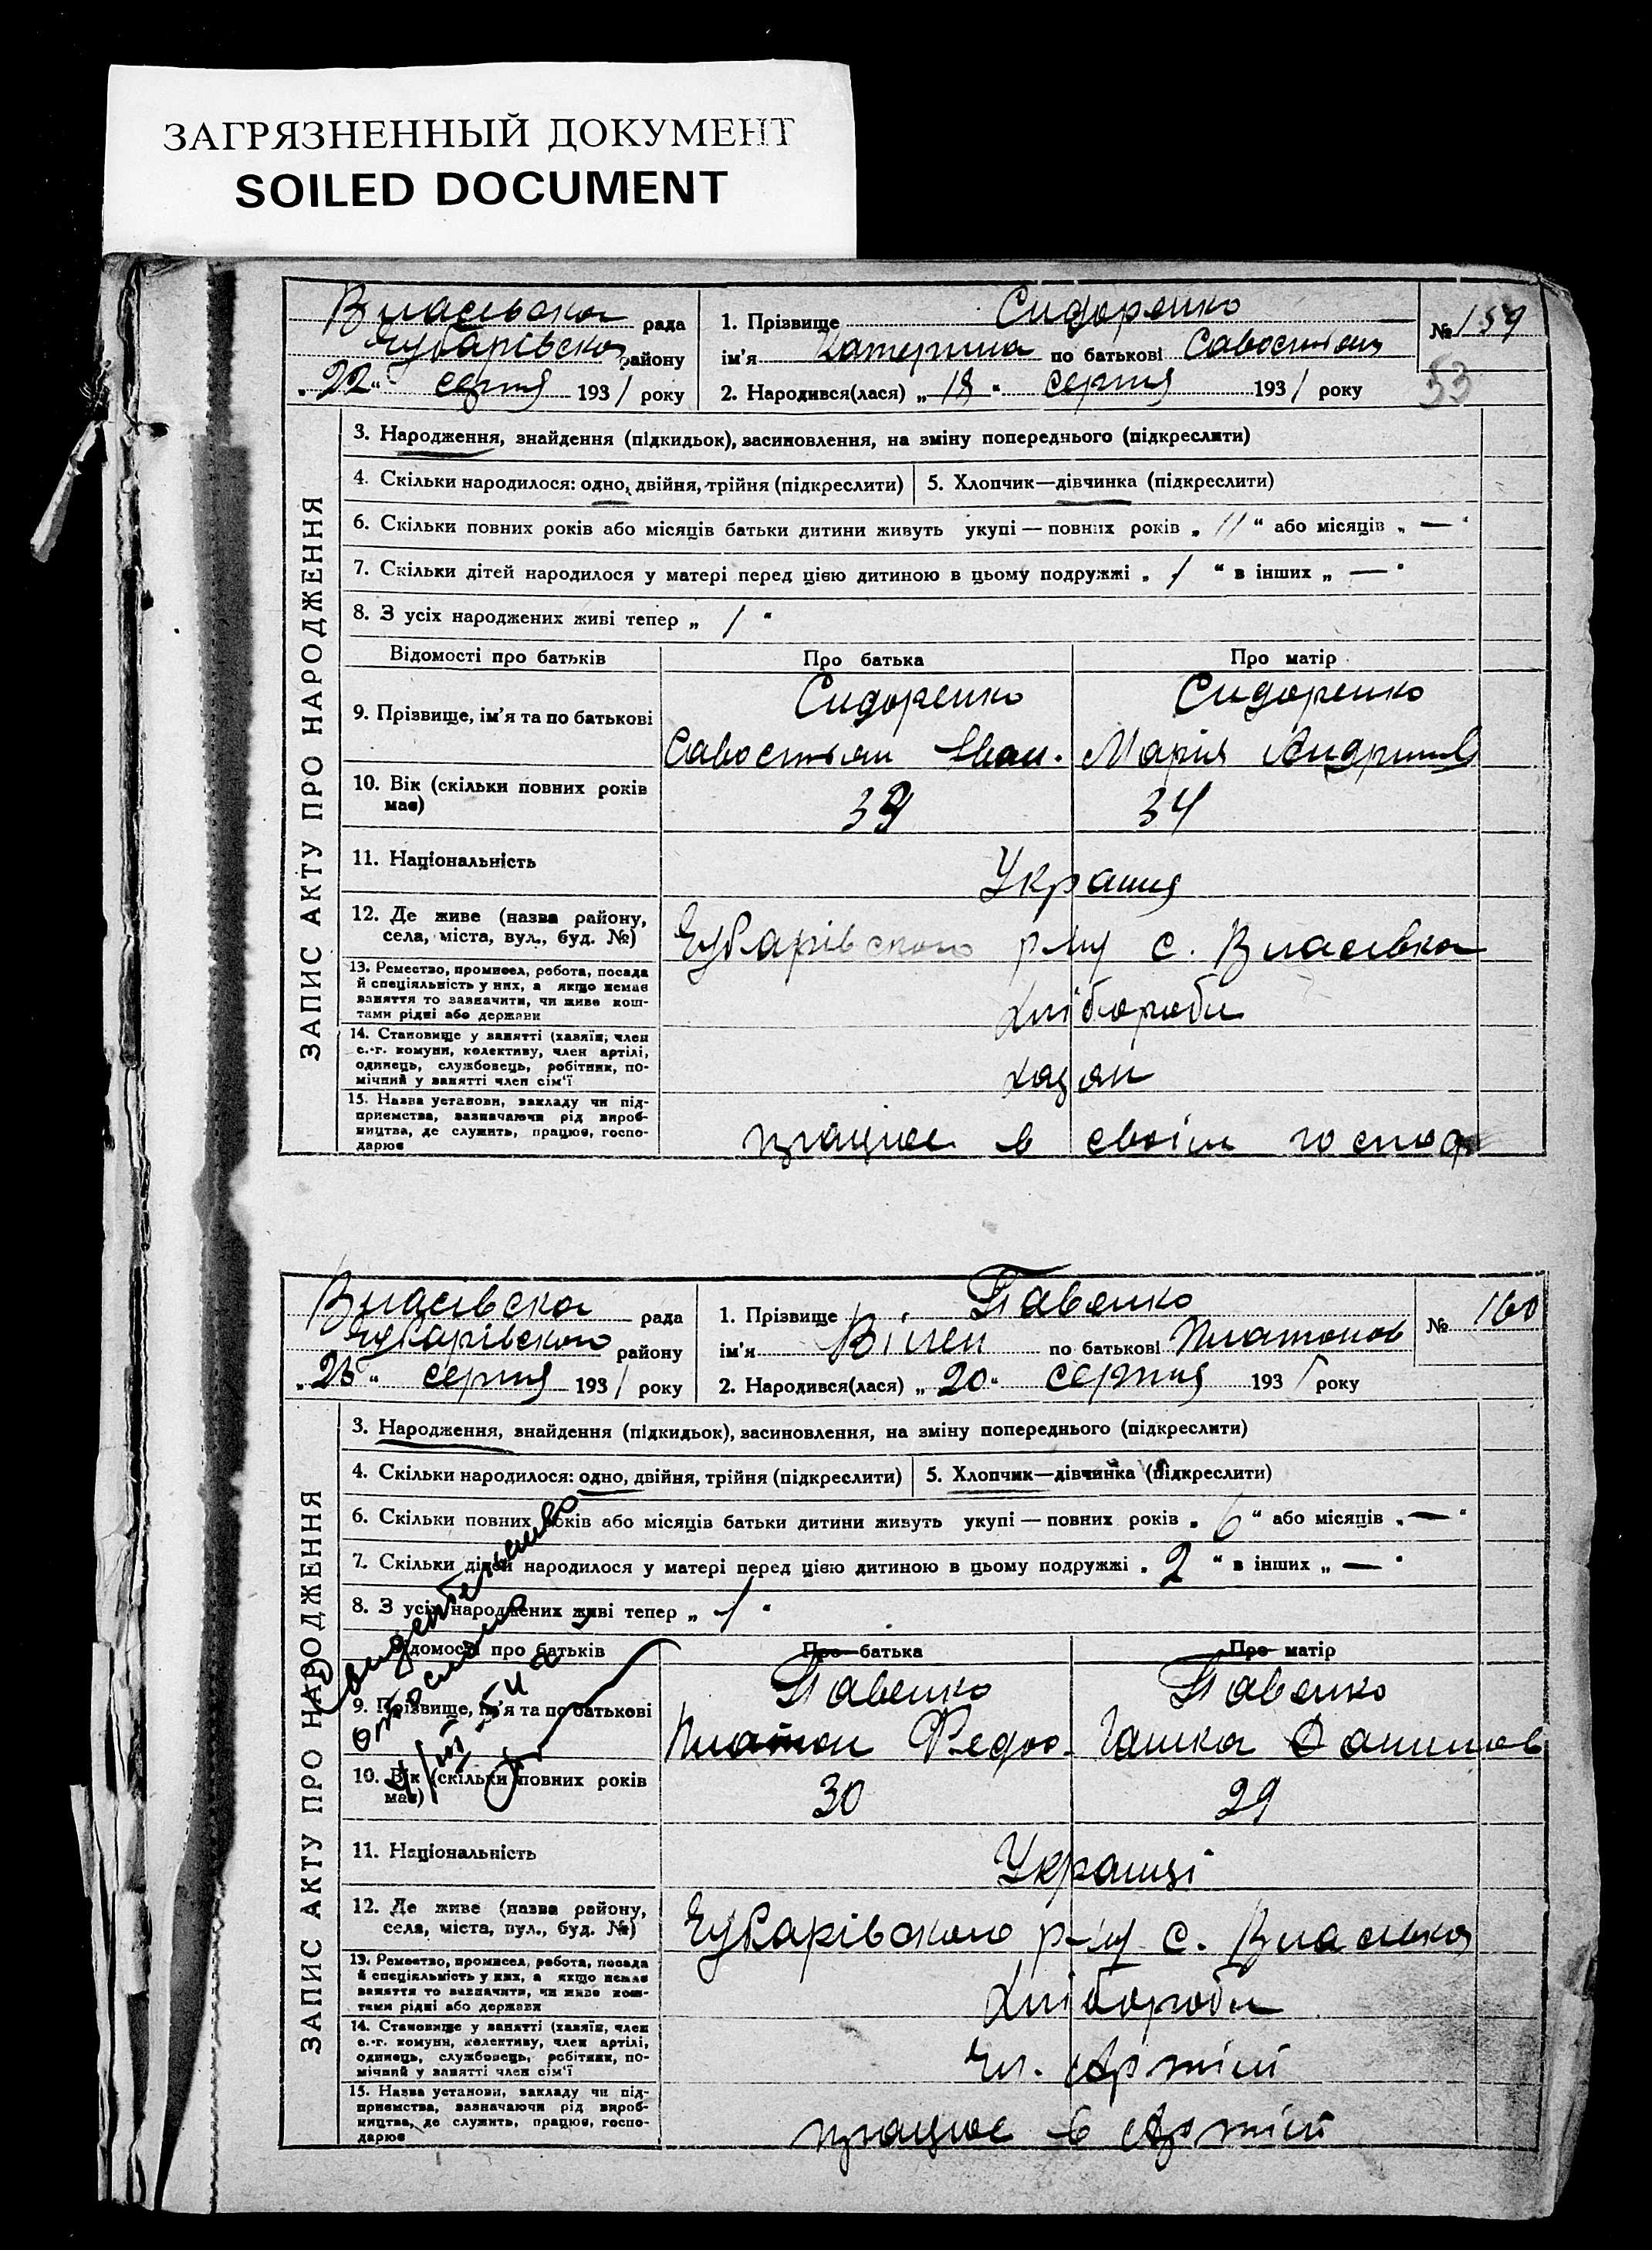 ЗАГРЯЗНЕННЫЙ ДОКУМЕНТ
SOILED DOCUMENT
Власівська рада
Чубарівсько району
„22“ серпня 1931 року
1. Прізвище Сидоренко
ім'я Катерина по батькові Савостьян
2. Народився(лася) „18“ серпня 1931 року
№ 159
53
ЗАПИС АКТУ ПРО НАРОДЖЕННЯ
3. Народження, знайдення (підкидьок), васиновлення, на зміну попереднього (підкреслити)
4. Скільки народилося: одно, двійня, трійня (підкреслити)
5. Хлопчик—дівчинка (підкреслити)
6. Скільки повних років або місяців батьки дитини живуть укупі — повних років „11“ або місяців „—“
7. Скільки дітей народилося у матері перед цією дитиною в цьому подружжі „1“ в інших „—“
8. З усіх народжених живі тепер „1“
Відомості про батьків
Про батька
Про матір
9. Прізвище, ім'я та по батькові
Сидоренко
Савостьян Іван.
Сидоренко
Марія
10. Вік (скільки повних років має)
34
11. Національність
Українц
12. Де живе (назва району, села, міста, вул., буд. №)
Чубарівського р-ну с. Власівка
13. Ремество, промисел, робота, посада
й спеціяльність у них, а якщо немає
заняття то зазначити, чи живе кош-
тами рідні або держави
Хлібороби
14. Становище у занятті (хазяїн, член
с.-г. комуни, колективу, член артілі,
одинець, службовець, робітник, по-
мічний у занятті член сім'ї
Хазяїн
15. Назва установи, закладу чи під-
приємства, зазначаючи рід вироб-
ництва, де служить, працює, госпо-
дарює
працює в своїм господ
Власівска рада
Чубарівського району
серпня 1931 року
1. Прізвище Павенко
ім'я Вілен по батькові Платонов
2. Народився(лася) „20“ серпня 1931 року
№ 160
ЗАПИС АКТУ ПРО НАРОДЖЕННЯ
3. Народження, знайдення (підкидьок), васиновлення, на зміну попереднього (підкреслити)
4. Скільки народилося: одно, двійня, трійня (підкреслити)
5. Хлопчик—дівчинка (підкреслити)
6. Скільки повних років або місяців батьки дитини живуть укупі — повних років „6“ або місяців „—“
7. Скільки дітей народилося у матері перед цією дитиною в цьому подружжі „2“ в інших „—“
8. З усіх народжених живі тепер „1“
Свидетельство
отослано
Відомості про батьків
Про батька
Про матір
9. Прізвище, ім'я та по батькові
Павенко
Платон Федоо.
Павенко
Гашка Данилов
10. Вік (скільки повних років має)
30
29
11. Національність
Українці
12. Де живе (назва району, села, міста, вул., буд. №)
Чубарівського р-ну с. Власівка
13. Ремество, промисел, робота, посада
й спеціяльність у них, а якщо немає
заняття то зазначити, чи живе кош-
тами рідні або держави
Хлібороби
14. Становище у занятті (хазяїн, член
с.-г. комуни, колективу, член артілі,
одинець, службовець, робітник, по-
мічний у занятті член сім'ї
Чл. Артілі
15. Назва установи, закладу чи під-
приємства, зазначаючи рід вироб-
ництва, де служить, працює, госпо-
дарює
працює в Артілі